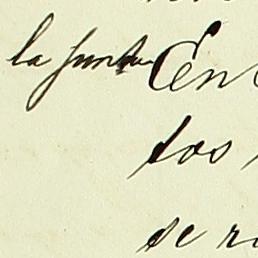 la junta En
tos
se r